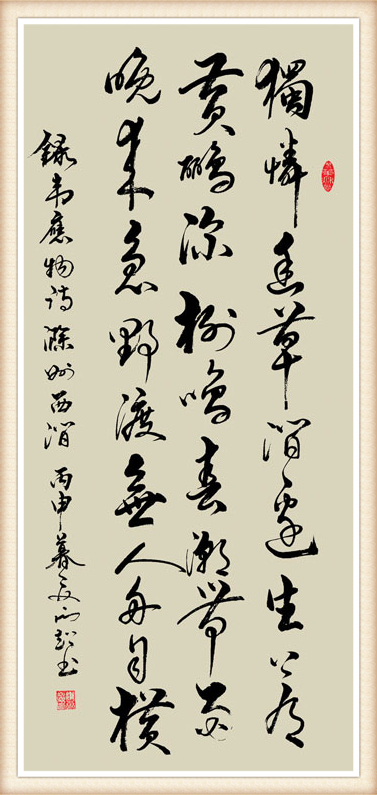 獨憐幽草澗邊生上有
黄鸝深樹鳴春潮帶雨
晚來急野渡無人舟自橫
錄韋應物詩滁州西澗 丙申暮夏